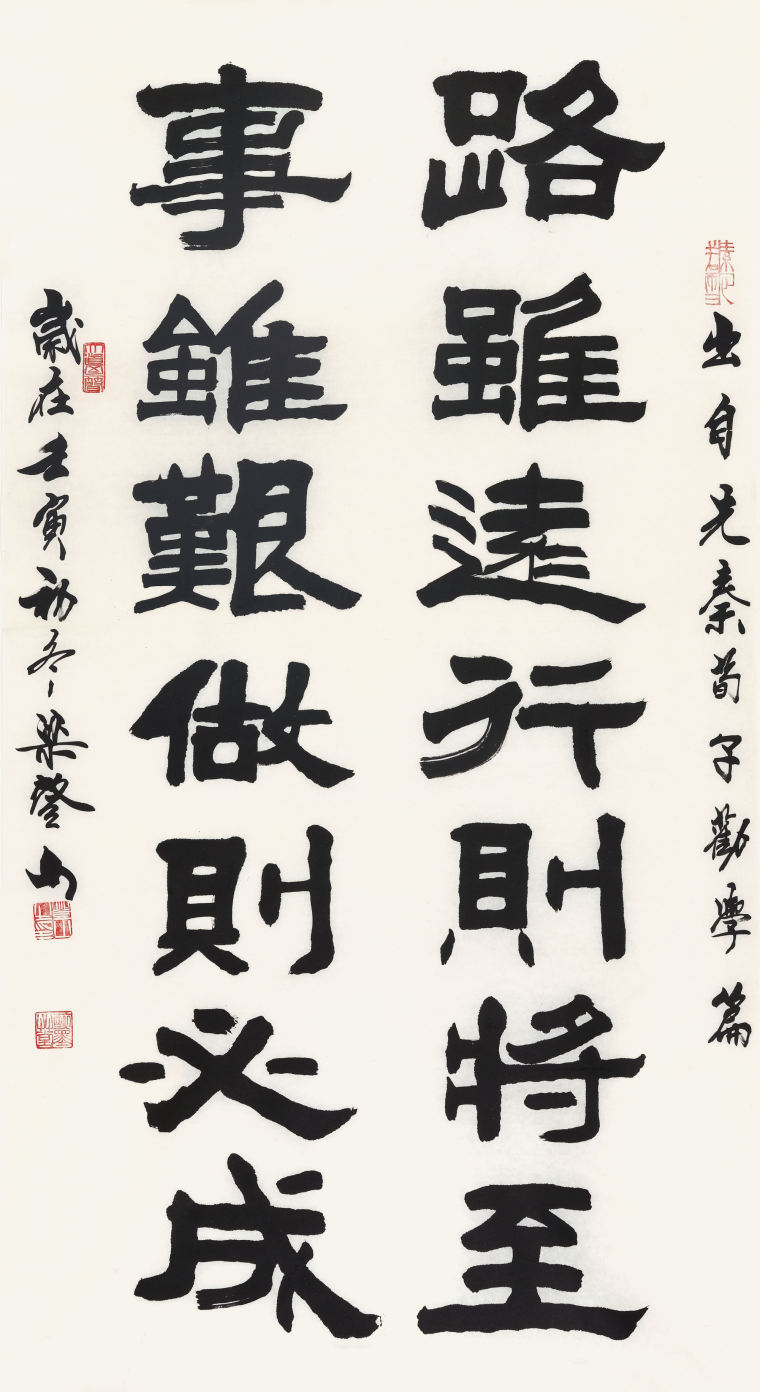 出自先秦荀子勸學篇
路雖遠行則將至
事雖艱做則必成
歲在壬寅初冬梁登山